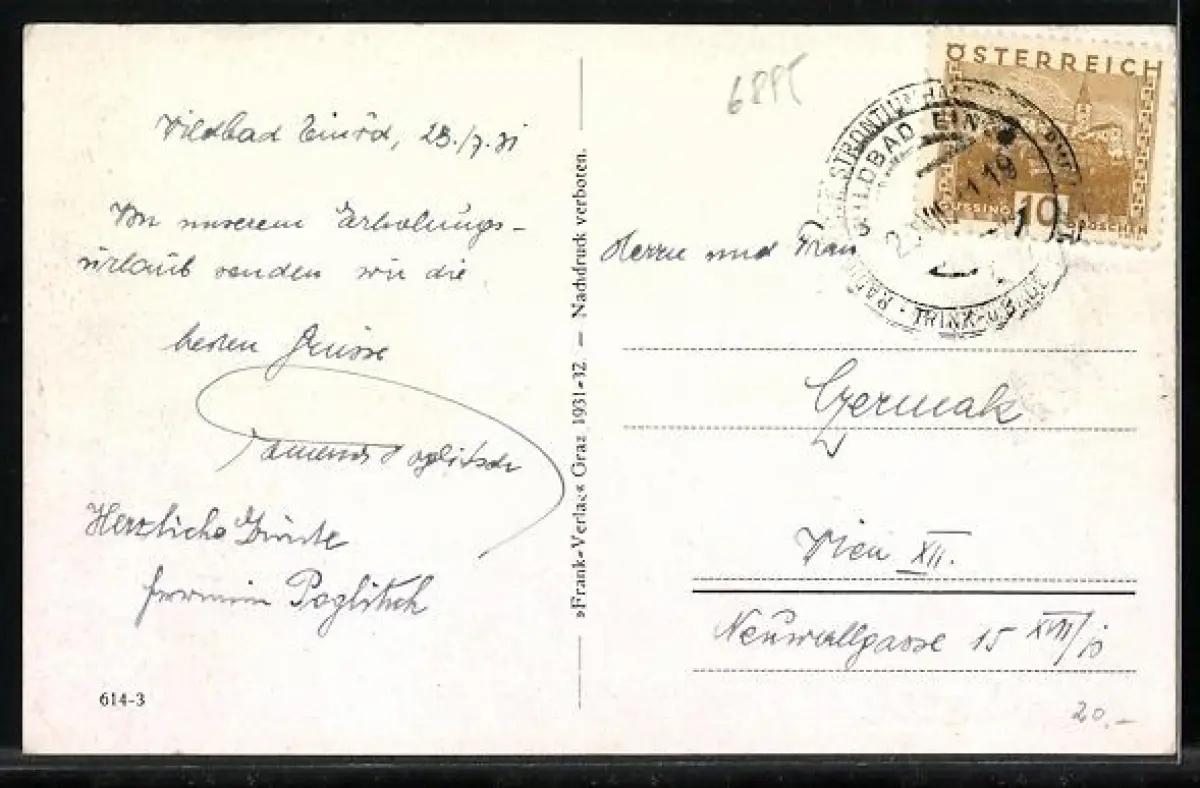 Wildbad Einöd, 23./7.31
Von unserem Erholungs-
urlaub senden wir die
besten Grüsse
Poglitsch
Herzliche Grüsse
Poglitsch
614-3
»Frank«-Verlag, Graz 1931-32. — Nachdruck verboten.
ÖSTERREICH
GÜSSING 10 GROSCHEN
WILDBAD EINÖD
TRINK- u. BADE
Herrn und Frau
Czermak
Wien XII.
15 XVII/10
20.-